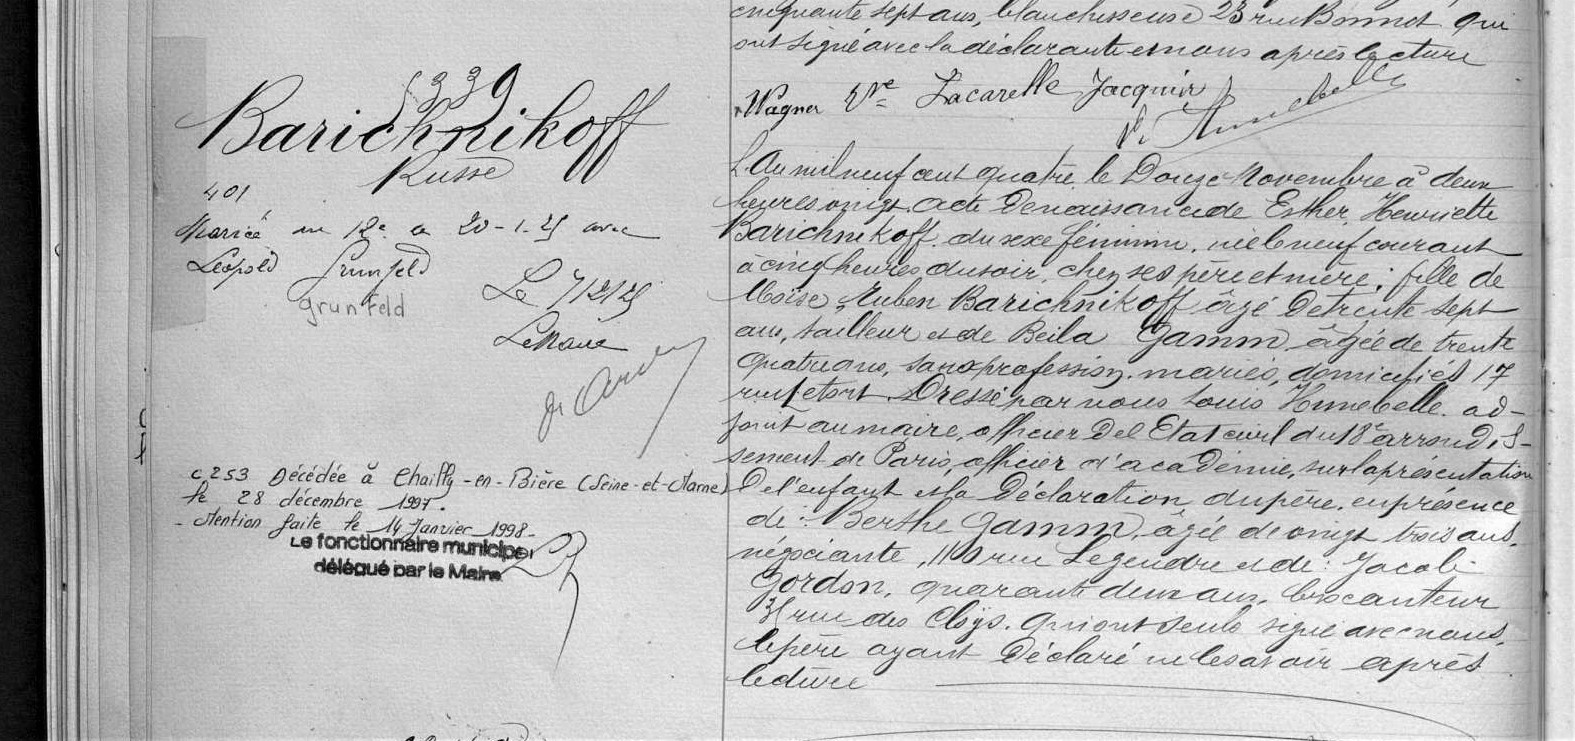 cinquante sept ans, blanchisseuse 23 rue Bonnot qui
ont signé avec la déclarante et nous après lecture
Wagner Vve Lacarelle Jacquin
5339
Barichnikoff
Russe
401
Mariée in 12e a 20-1-25 avec
Léopold Grunfeld
grunfeld
Le 7/2/25
Le Maire
C253 Décédée à Chailly-en-Bière (Seine-et-Marne)
le 28 décembre 1997.
- Mention faite le 14 Janvier 1998-
Le fonctionnaire municipal
délégué par le Maire
L'An mil neuf cent quatre le Douze Novembre à deux
heures vingt. acte de naissance de Esther Henriette
Barichnikoff du sexe féminin, née le neuf courant
à cinq heures du soir, chez ses père et mère; fille de
Moïse Ruben Barichnikoff âgé de trente sept
ans, tailleur et de Beila Gamm âgée de trente
quatre ans, sans profession, mariés, domiciliés 17
rue Letort. Dressé par nous Louis Hennebelle ad-
joint au maire, officier de l'Etat civil du 18e arrondis-
sement de Paris, officier d'académie, sur la présentation
de l'enfant et la Déclaration du père, en présence
de: Berthe Gamm, âgée de vingt trois ans,
négociante, rue Legendre et de: Jacob
Gordon, quarante deux ans, brocanteur
31 rue des Cloÿs. qui ont seuls signé avec nous,
le père ayant Déclaré ne le savoir après
lecture